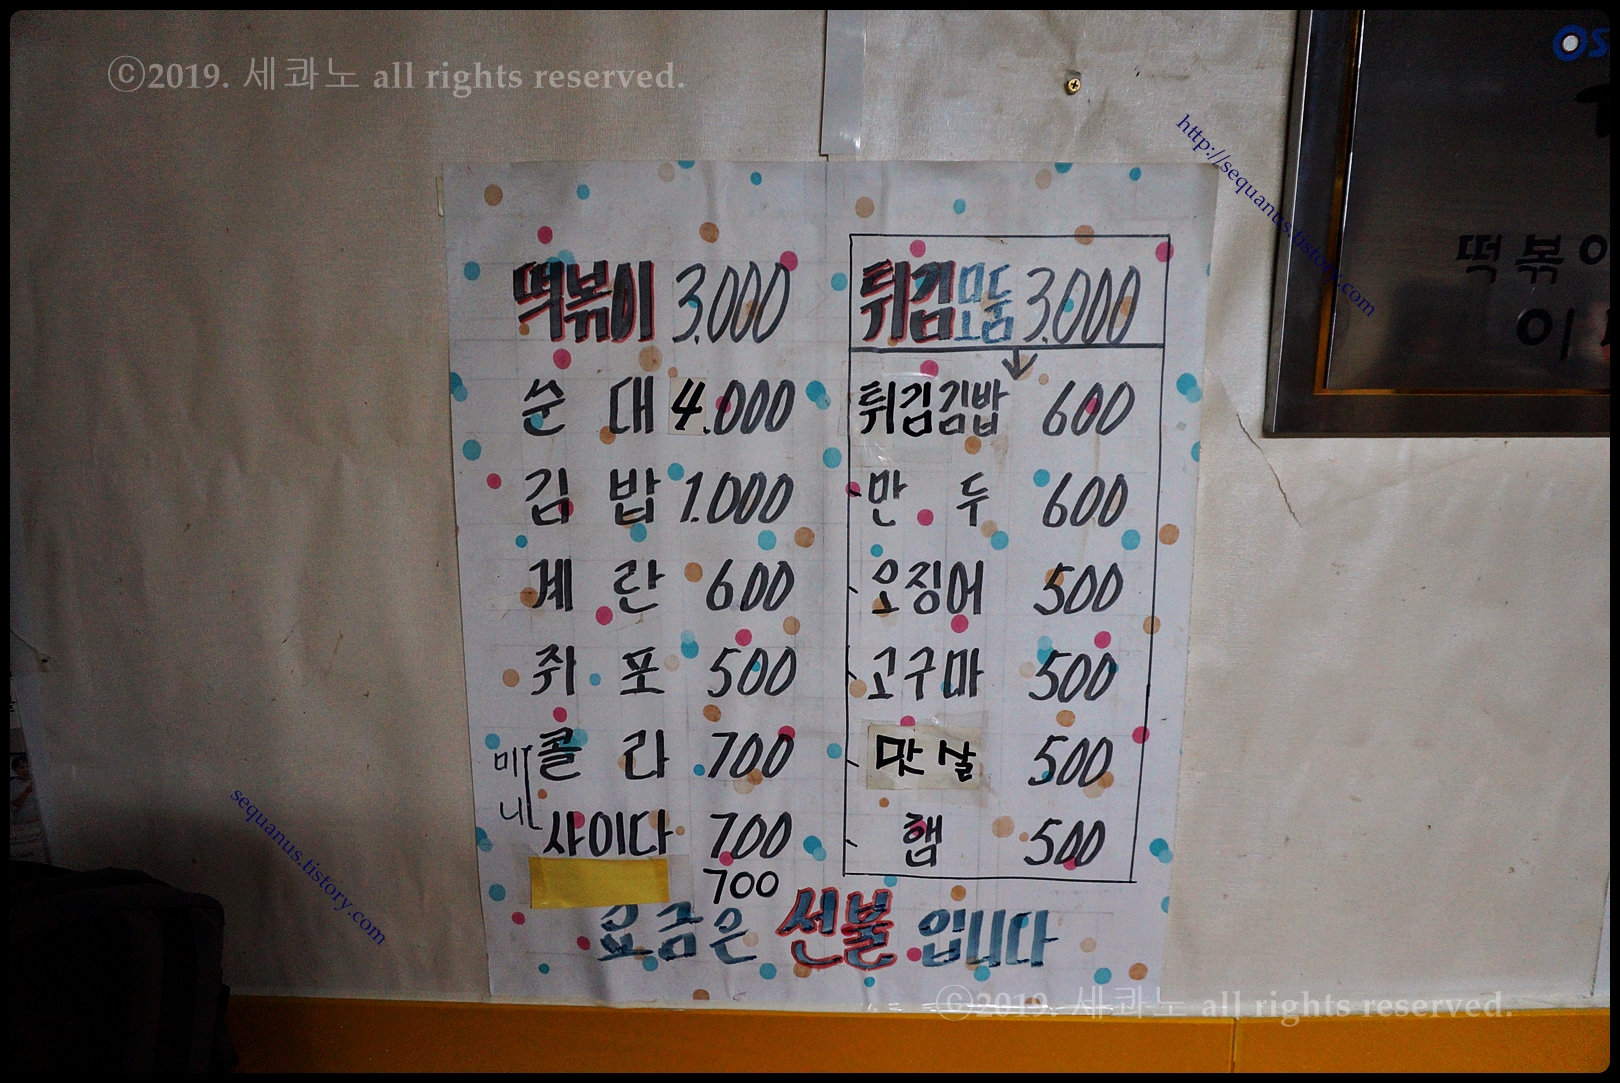 ⓒ2019. 세콰노 all rights reserved.
http://sequanus.tistory.com
떡볶이 3.000
순대 4.000
김밥 1.000
계란 600
쥐포 500
미니
콜라 700
사이다 700
700
튀김모둠 3.000
튀김김밥 600
만두 600
오징어 500
고구마 500
맛살 500
햄 500
요금은 선불 입니다
떡볶이
이
sequanus.tistory.com
ⓒ2019. 세콰노 all rights reserved.